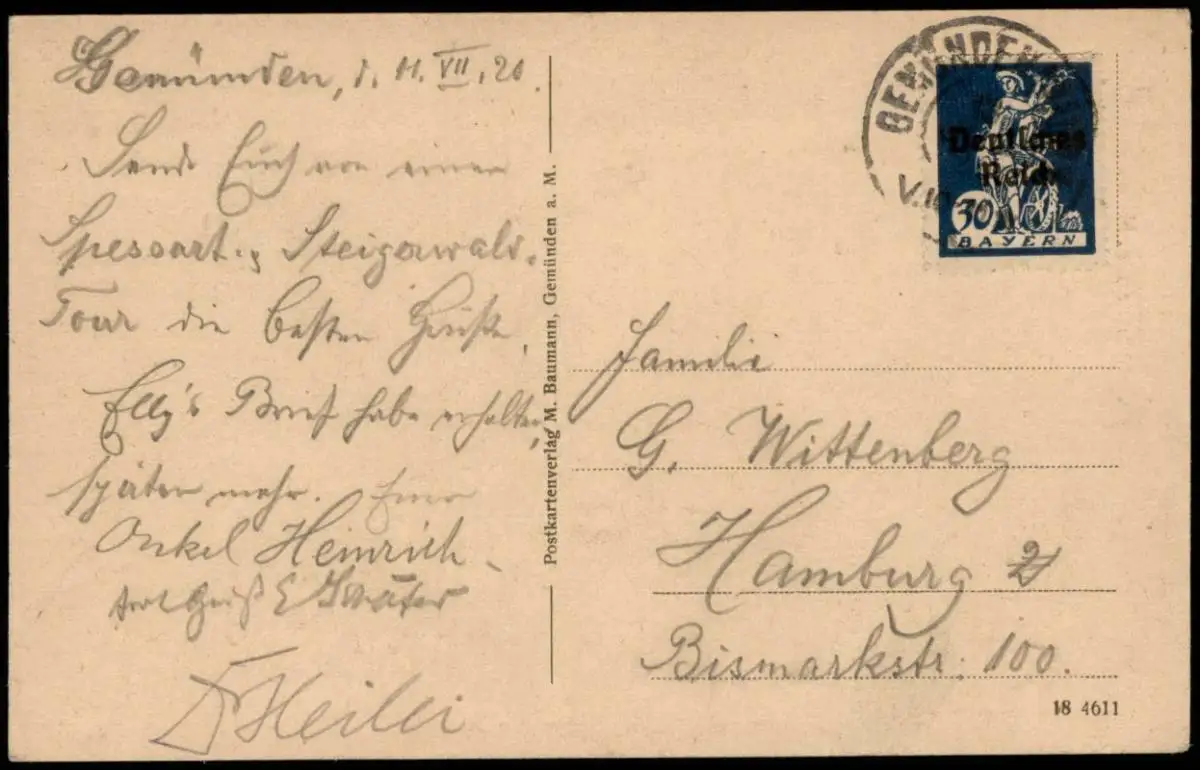 Gemünden, d. 11. VII. 20
Sende Euch von einer
Spessart- u. Steigerwald-
Tour die besten Grüße,
Elly's Brief habe erhalten,
später mehr. Euer
Onkel Heinrich.
Gruß E
Postkartenverlag M. Baumann, Gemünden a. M.
GEMÜNDEN
Deutsches
Reich
30
BAYERN
Familie
G. Wittenberg
Hamburg 2
Bismarkstr. 100.
18 4611